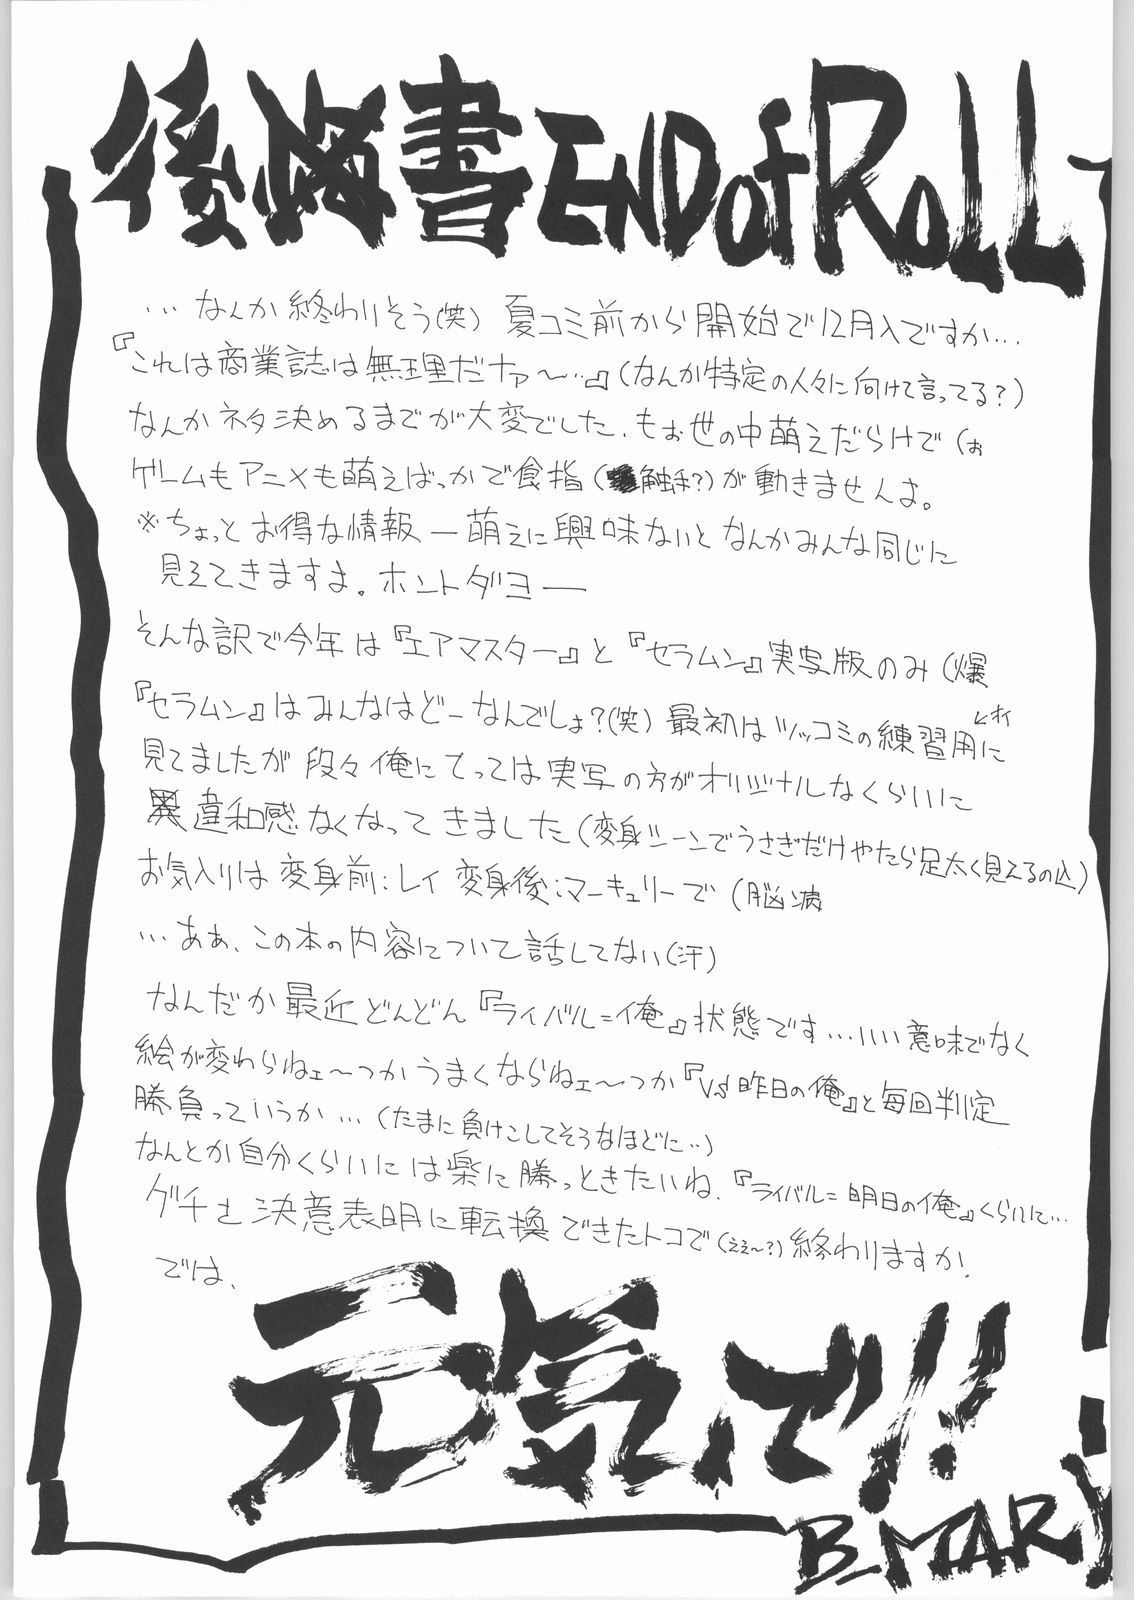 後悔書 END of RoLL
…なんか終わりそう(笑) 夏コミ前から開始で12月入ですか…
『これは商業誌は無理だナァ〜…』(なんか特定の人々に向けて言ってる?)
なんかネタ決めるまでが大変でした、もぉ世の中萌えだらけで(ぉ
ゲームもアニメも萌えばっかで食指(触手?)が動きませんよ。
※ちょっとお得な情報 ― 萌えに興味ないとなんかみんな同じに
見えてきますよ。ホントダヨー
そんな訳で今年は『エアマスター』と『セラムン』実写版のみ(爆
『セラムン』はみんなはどーなんでしょ?(笑) 最初はツッコミの練習用に
見てましたが段々俺にとっては実写の方がオリジナルなくらいに
違和感なくなってきました(変身シーンでうさぎだけやたら足太く見えるの込)
お気入りは変身前:レイ 変身後:マーキュリーで (脳病
…ああ、この本の内容について話してない(汗)
なんだか最近どんどん『ライバル=俺』状態です…いい意味でなく
絵が変わらねェ〜つかうまくならねェ〜つか『VS昨日の俺』と毎回判定
勝負っていうか…(たまに負けこしてそうなほどに…)
なんとか自分くらいには楽に勝っときたいね、『ライバル=明日の俺』くらいに…
グチを決意表明に転換できたトコで(ええ〜?)終わりますか。
では、
元気で!!
B_MARY